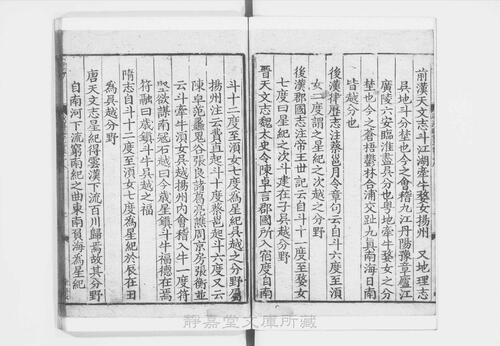 前漢天文志斗江湖牽牛婺女揚州　又地理志
吳地斗分埜也今之會稽九江丹陽豫章廬江
廣陵六安臨淮盡吳分也粤地牽牛婺女之分
埜也今之蒼梧鬱林合浦交趾九真南海日南
皆越分也
後漢律歷志注蔡邕月令章句云自斗六度至須
女二度謂之星紀之次越之分野
後漢郡國志注帝王世記云自斗十一度至婺女
七度曰星紀之次斗建在子吳越分野
晉天文志魏太史令陳卓言郡國所入宿度自南
斗十二度至須女七度爲星紀吳越之分野屬
揚州注云費直起斗十度蔡邕起斗六度又云
陳卓范蠡鬼谷張良諸葛亮譙周京房張衡並
云斗牽牛須女吳越揚州內會稽入牛一度符
堅欲謀南寇石越曰今歲星鎮斗牛福德在焉
符融曰歲鎮斗牛吳越之福
隋志自斗十二度至須女七度爲星紀於辰在丑
爲吳越分野
唐天文志星紀得雲漢下流百川歸焉故其分野
自南河下流窮南紀之曲東南負海爲星紀
靜嘉堂文庫所藏